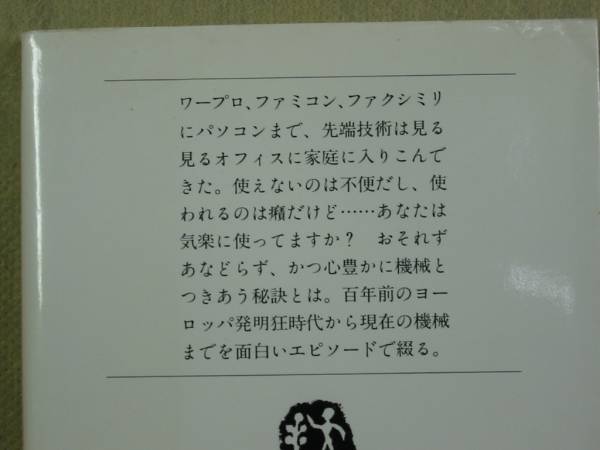 ワープロ、ファミコン、ファクシミリ
にパソコンまで、先端技術は見る
見るオフィスに家庭に入りこんで
きた。使えないのは不便だし、使
われるのは癪だけど……あなたは
気楽に使ってますか？　おそれず
あなどらず、かつ心豊かに機械と
つきあう秘訣とは。百年前のヨー
ロッパ発明狂時代から現在の機械
までを面白いエピソードで綴る。